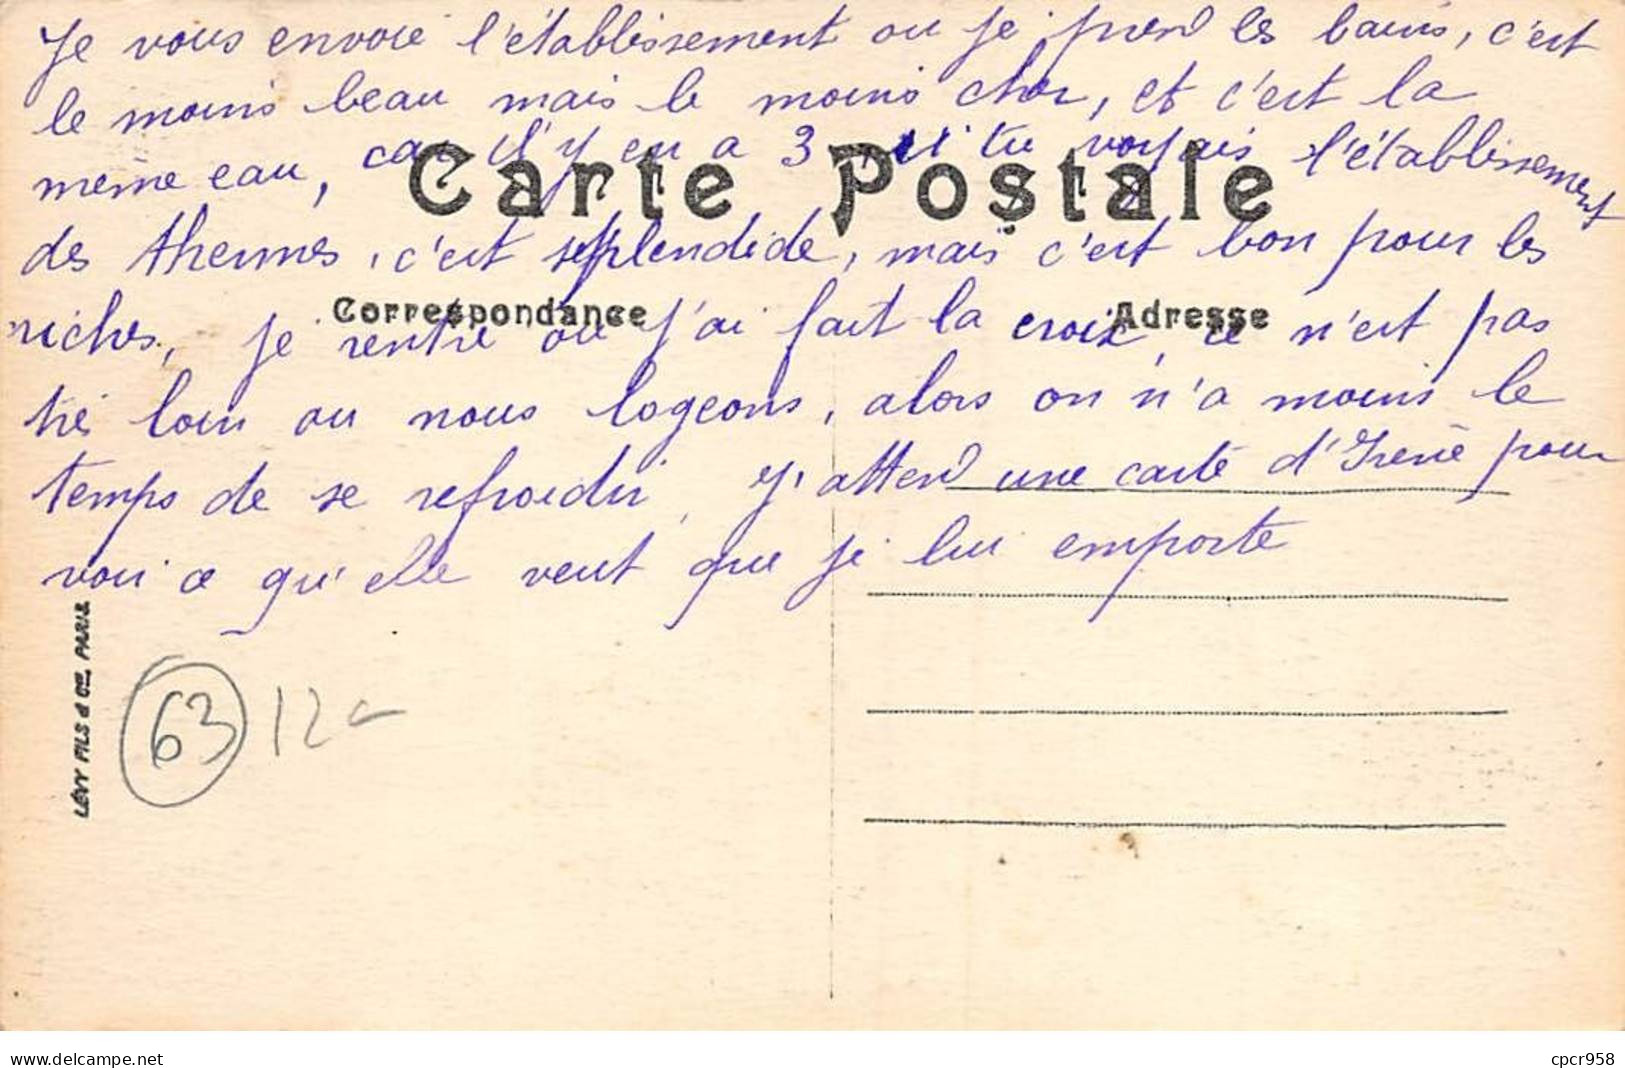 Je vous envoie l'établissement ou je prend les bains, c'est
le moins beau mais le moins cher, et c'est la
meme eau, car il y en a 3, si tu voyais l'établissement
Carte Postale
des thermes, c'est splendide, mais c'est bon pour les
Correspondance
Adresse
riches, je rentre ou j'ai fait la croix, ce n'est pas
tres loin ou nous logeons, alors on n'a moins le
temps de se refroidir, j'attend une carte d'Irene pour
voir ce qu'elle veut que je lui emporte
LÉVY FILS & Cie, PARIS
63 12
cpcr958